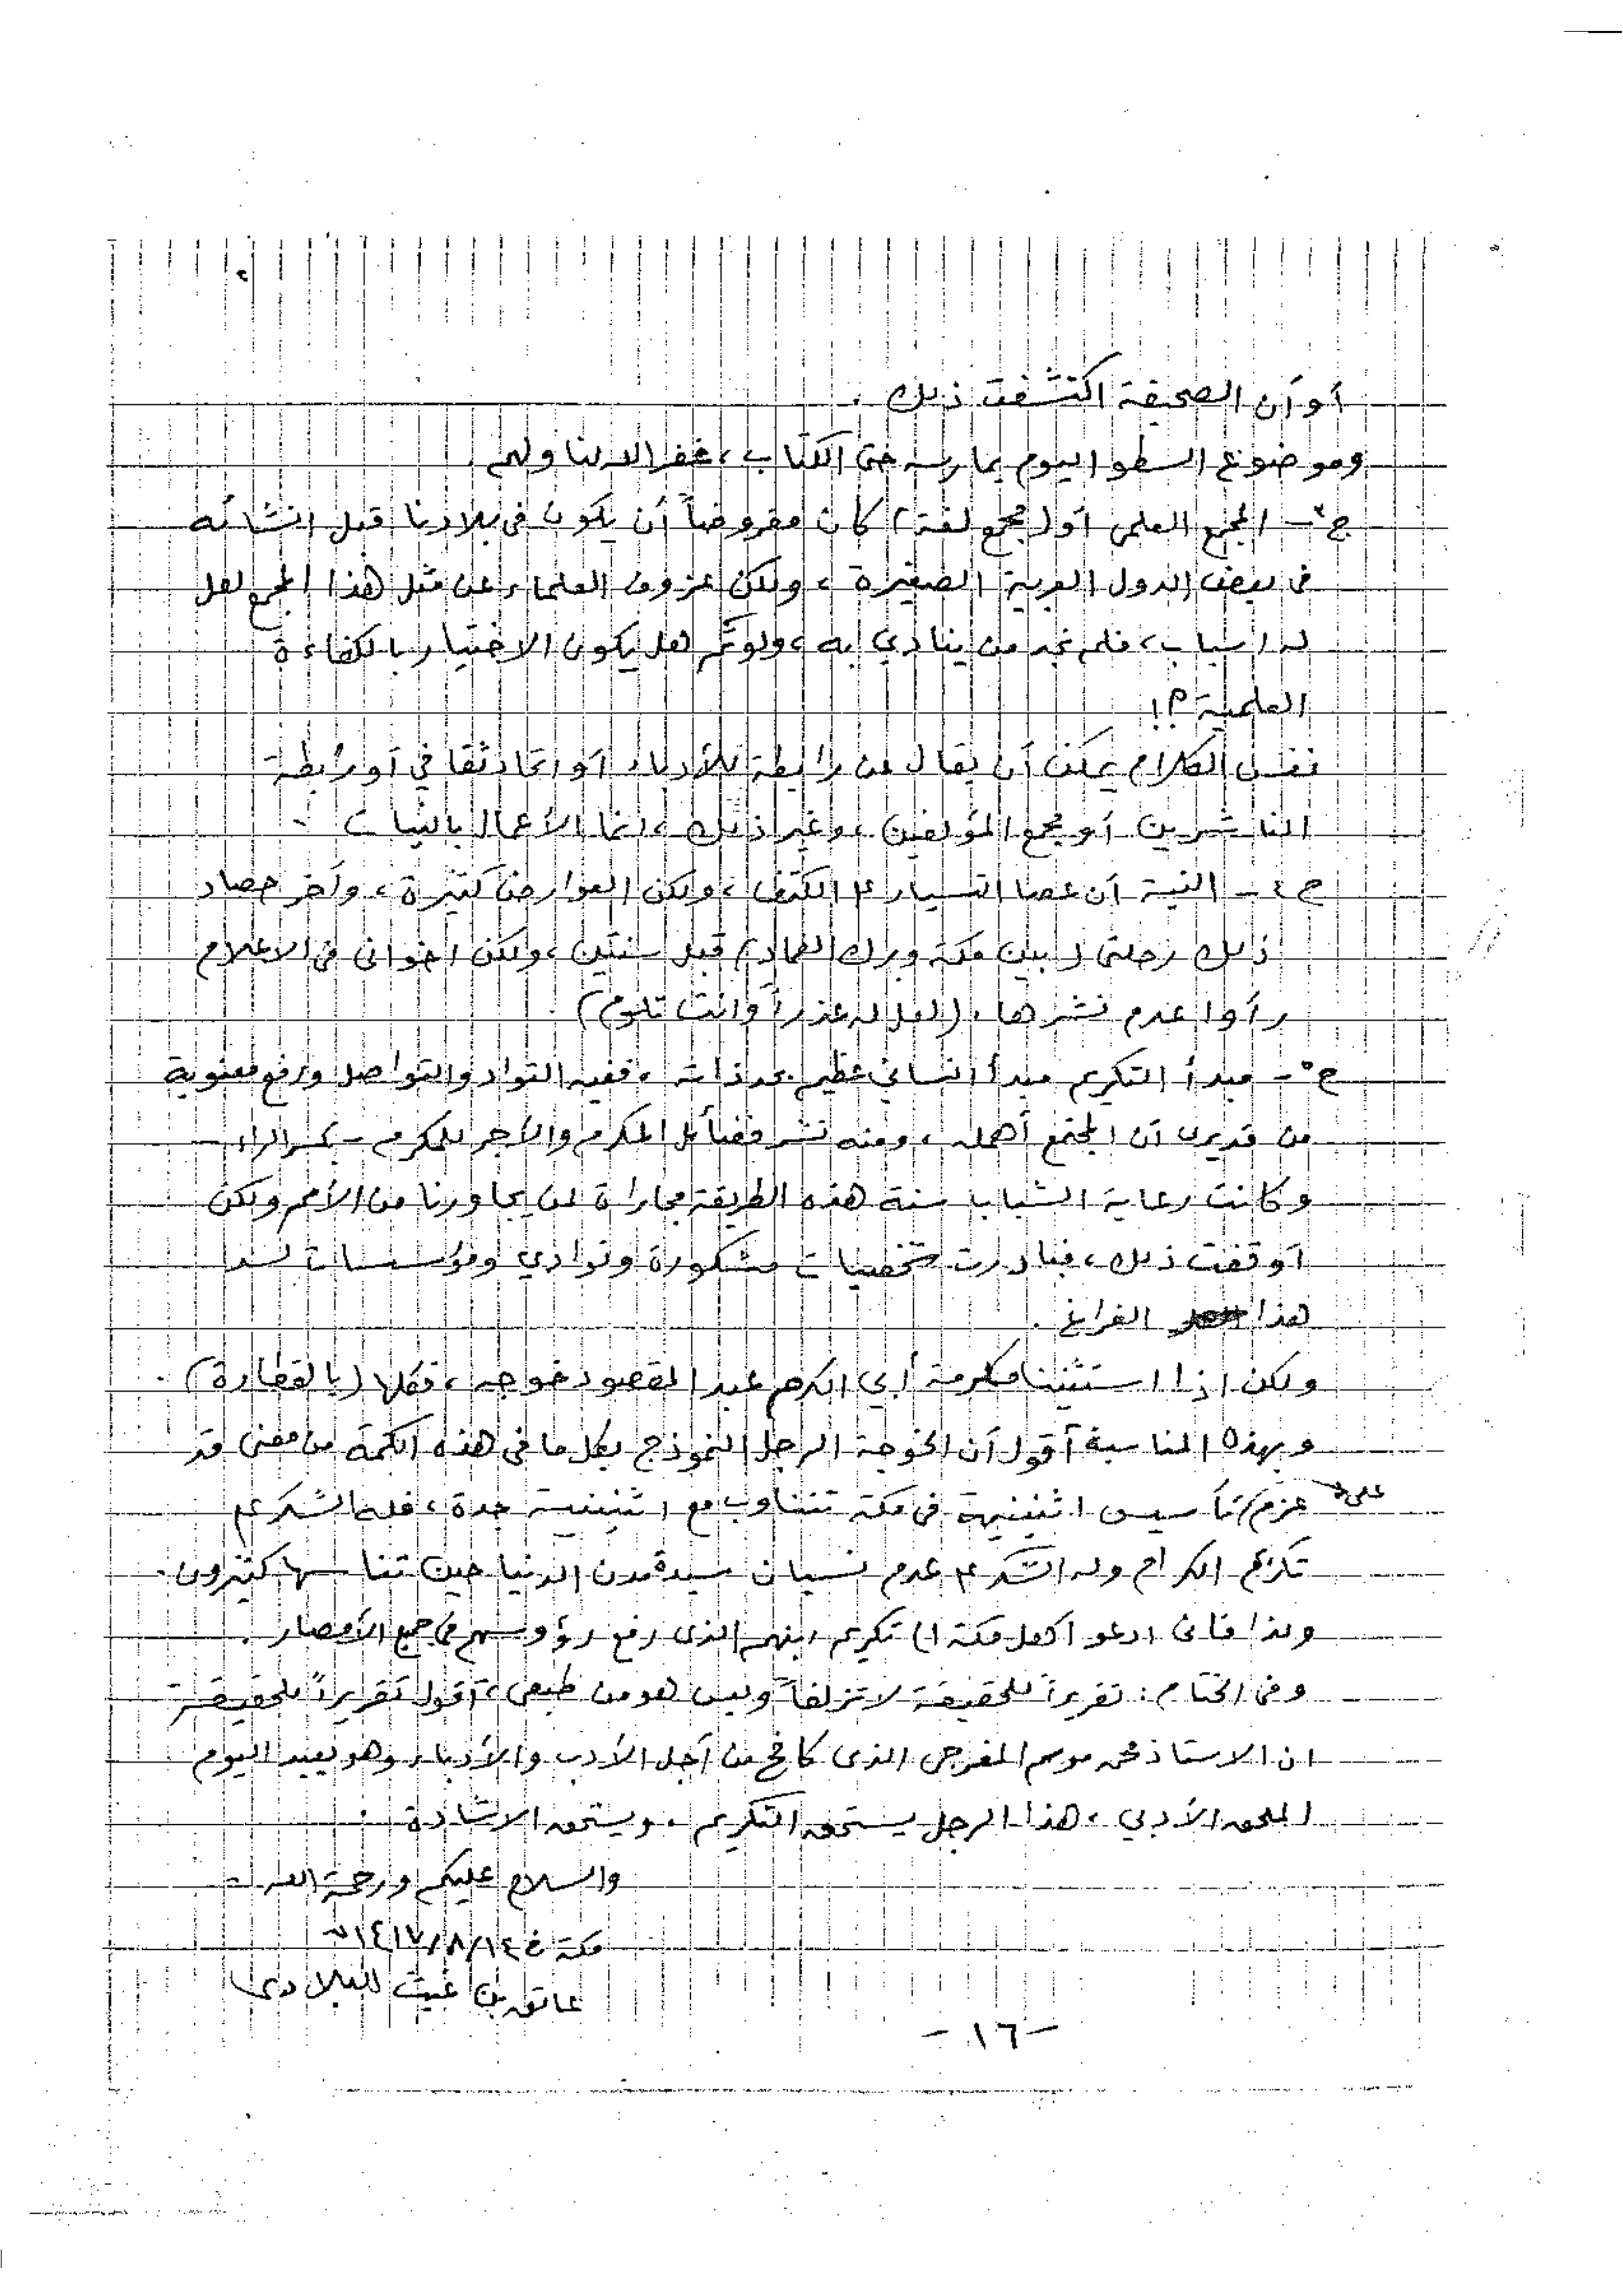 أو أن الصحيفة اكتشفت ذلك .
وموضوع السطو اليوم يمارسه حتى الكتّاب ، غفر الله لنا ولهم
ج٣ - المجمع العلمي أو (مجمع لغة) كان مفروضاً أن يكون في بلادنا قبل انشائه
في بعض الدول العربية الصغيرة ، ولكن عزوف العلماء عن مثل هذا المجمع لعل
له أسباب ، فلم نجد من ينادي به ، ولو تم هل يكون الاختيار بالكفاءة
العلمية ؟!
نفس الكلام يمكن أن يقال عن رابطة للأدباء أو اتحاد ثقافي أو رابطة
الناشرين أو مجمع المؤلفين ، وغير ذلك ، انما الأعمال بالنيات .
ج٤ - النية أن عصا التسيار على الكتف ، ولكن العوارض كثيرة ، وآخر حصاد
ذلك رحلتي (بين مكة وبرك الغماد) قبل سنتين ، ولكن اخواني في الاعلام
رأوا عدم نشرها . (لعل له عذراً وانت تلوم)
ج٥ - مبدأ التكريم مبدأ انساني عظيم بحد ذاته ، ففيه التواد والتواصل ورفع معنوية
من قد يرى أن المجتمع أهمله ، ومنه نشر فضائل المكرم والأجر للمكرم - بكسر الراء
وكانت رعاية الشباب سنة هذه الطريقة مجاراة لمن يجاورنا من الأمم ولكن
أوقفت ذلك ، فبادرت شخصيات مشكورة ونوادي ومؤسسات لسد
هذا الفراغ .
ولكن اذا استثنينا مكرمة أبي الكرم عبد المقصود خوجه ، فكلها (بالقطارة) .
وبهذه المناسبة أقول أن الخوجة الرجل النموذج بكل ما في هذه الكلمة من معنى قد
عزم على تأسيس اثنينية في مكة تتناوب مع اثنينية جدة ، فله الشكر على
تكريم الكرام وله الشكر على عدم نسيان سيدة مدن الدنيا حين تناسها كثيرون .
ولذا فاني ادعو أهل مكة الى تكريم ابنهم الذي رفع رؤوسهم في جميع الأمصار .
وفي الختام : تقريراً للحقيقة لا تزلفاً وليس هو من طبعي ، أقول تقريراً للحقيقة
ان الاستاذ محمد موسم المفرجي الذي كافح من أجل الأدب والأدباء وهو يعيد اليوم
الملحق الأدبي ، هذا الرجل يستحق التكريم ، ويستحق الاشادة .
والسلام عليكم ورحمة الله -
مكة في ١٤/٨/١٤١٧هـ
عاتق بن غيث البلادي
- ١٦ -